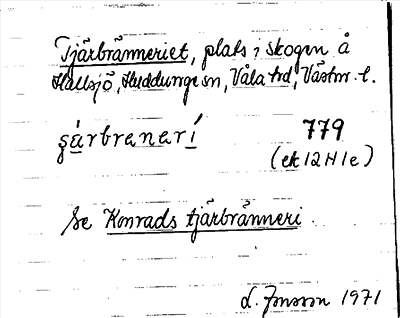 Tjärbränneriet, plats i skogen å
Hallsjö, Huddunge sn, Våla hd, Västm. l.
şärbrenerí 779
(ek 12H1e)
Se Konrads tjärbränneri
L. Jonsson 1971